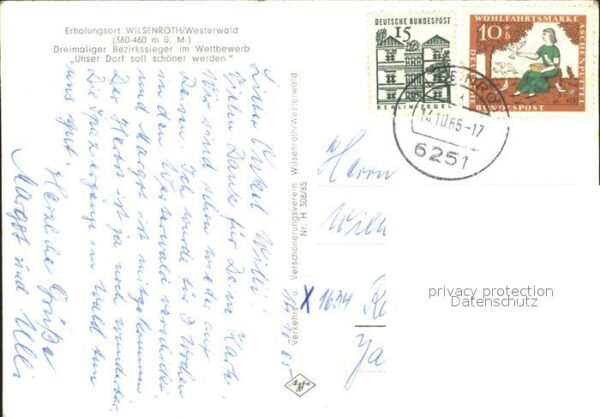 Erholungsort WILSENROTH/Westerwald
(360-460 m ü. M.)
Dreimaliger Bezirkssieger im Wettbewerb
"Unser Dorf soll schöner werden."
Lieber Onkel Willi!
14.10.65
Vielen Dank für Deine Karte.
Wir sind schon wieder auf
Reisen. Ich wurde für 3 Wochen
in den Westerwald verschickt
und Margot ist mitgekommen.
Der Herbst ist ja noch wunderbar.
Die Spaziergänge im Wald tun
uns gut.
Herzliche Grüße
Margot und Ulli
Verkehrs- u. Verschönerungsverein Wilsenroth/Westerwald
Nr. H 306/65
Agfa
DEUTSCHE BUNDESPOST
15
BERLIN-TEGEL
10+5
WOHLFAHRTSMARKE
ASCHENPUTTEL
DEUTSCHE
BUNDESPOST
14.10.65-17
6251
Herrn
Willi
X 1634
privacy protection
Datenschutz